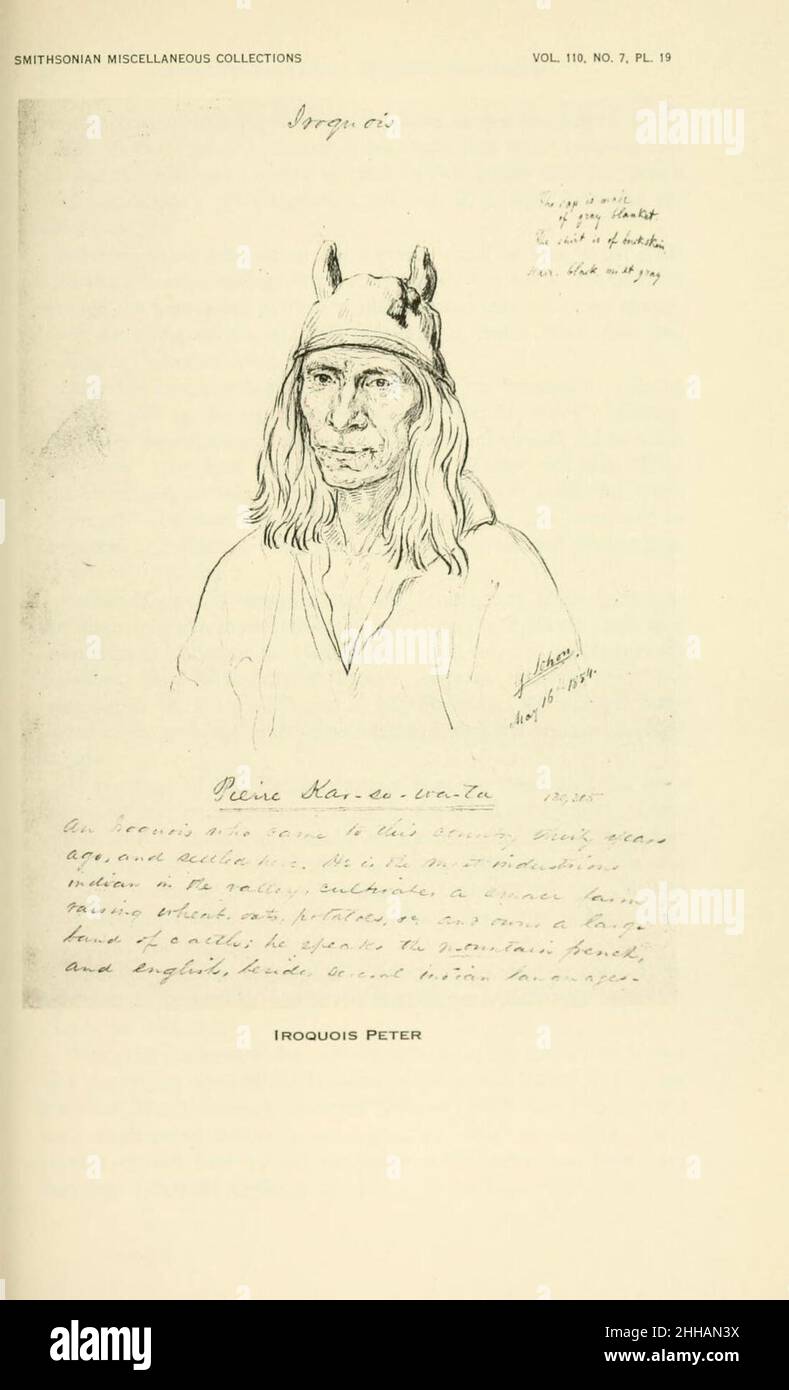 SMITHSONIAN MISCELLANEOUS COLLECTIONS VOL. 110, NO. 7, PL. 19
Iroquois
The cap is made
of gray blanket
The shirt is of buckskin
Hair. black mixt gray
G. Sohon.
May 16th 1854.
Pierre Kar-so-wa-ta
An Iroquois who came to this country thirty years
ago, and settled here. He is the most industrious
indian in the valley, cultivates a small farm
raising wheat, oats, potatoes, &c and owns a large
band of cattle; he speaks the mountain french,
and english, besides several indian languages.
IROQUOIS PETER
alamy
alamy
Image ID: 2HHAN3X
www.alamy.com